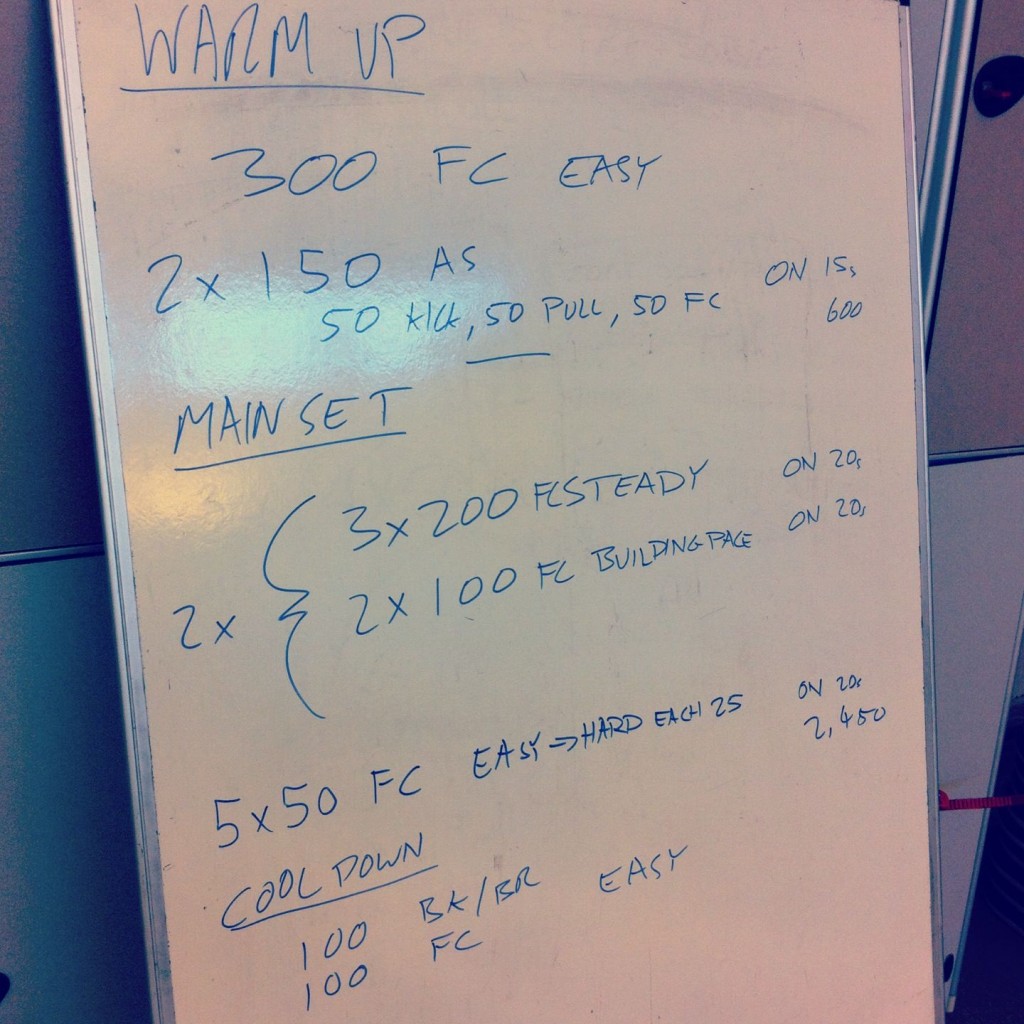 WARM UP
300 FC EASY
2x 150 AS
50 KICK, 50 PULL, 50 FC ON 15s
600
MAIN SET
2x { 3x200 FC STEADY ON 20s
2x100 FC BUILDING PACE ON 20s
5x50 FC EASY → HARD EACH 25 ON 20s
2,450
COOL DOWN
100 BK/BR EASY
100 FC